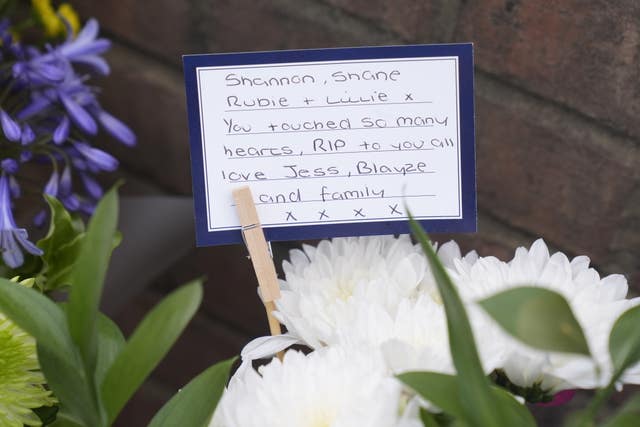 Shannon, Shane
Rubie + Lillie x
You touched so many
hearts, RIP to you all
love Jess, Blayze
and family
x x x x